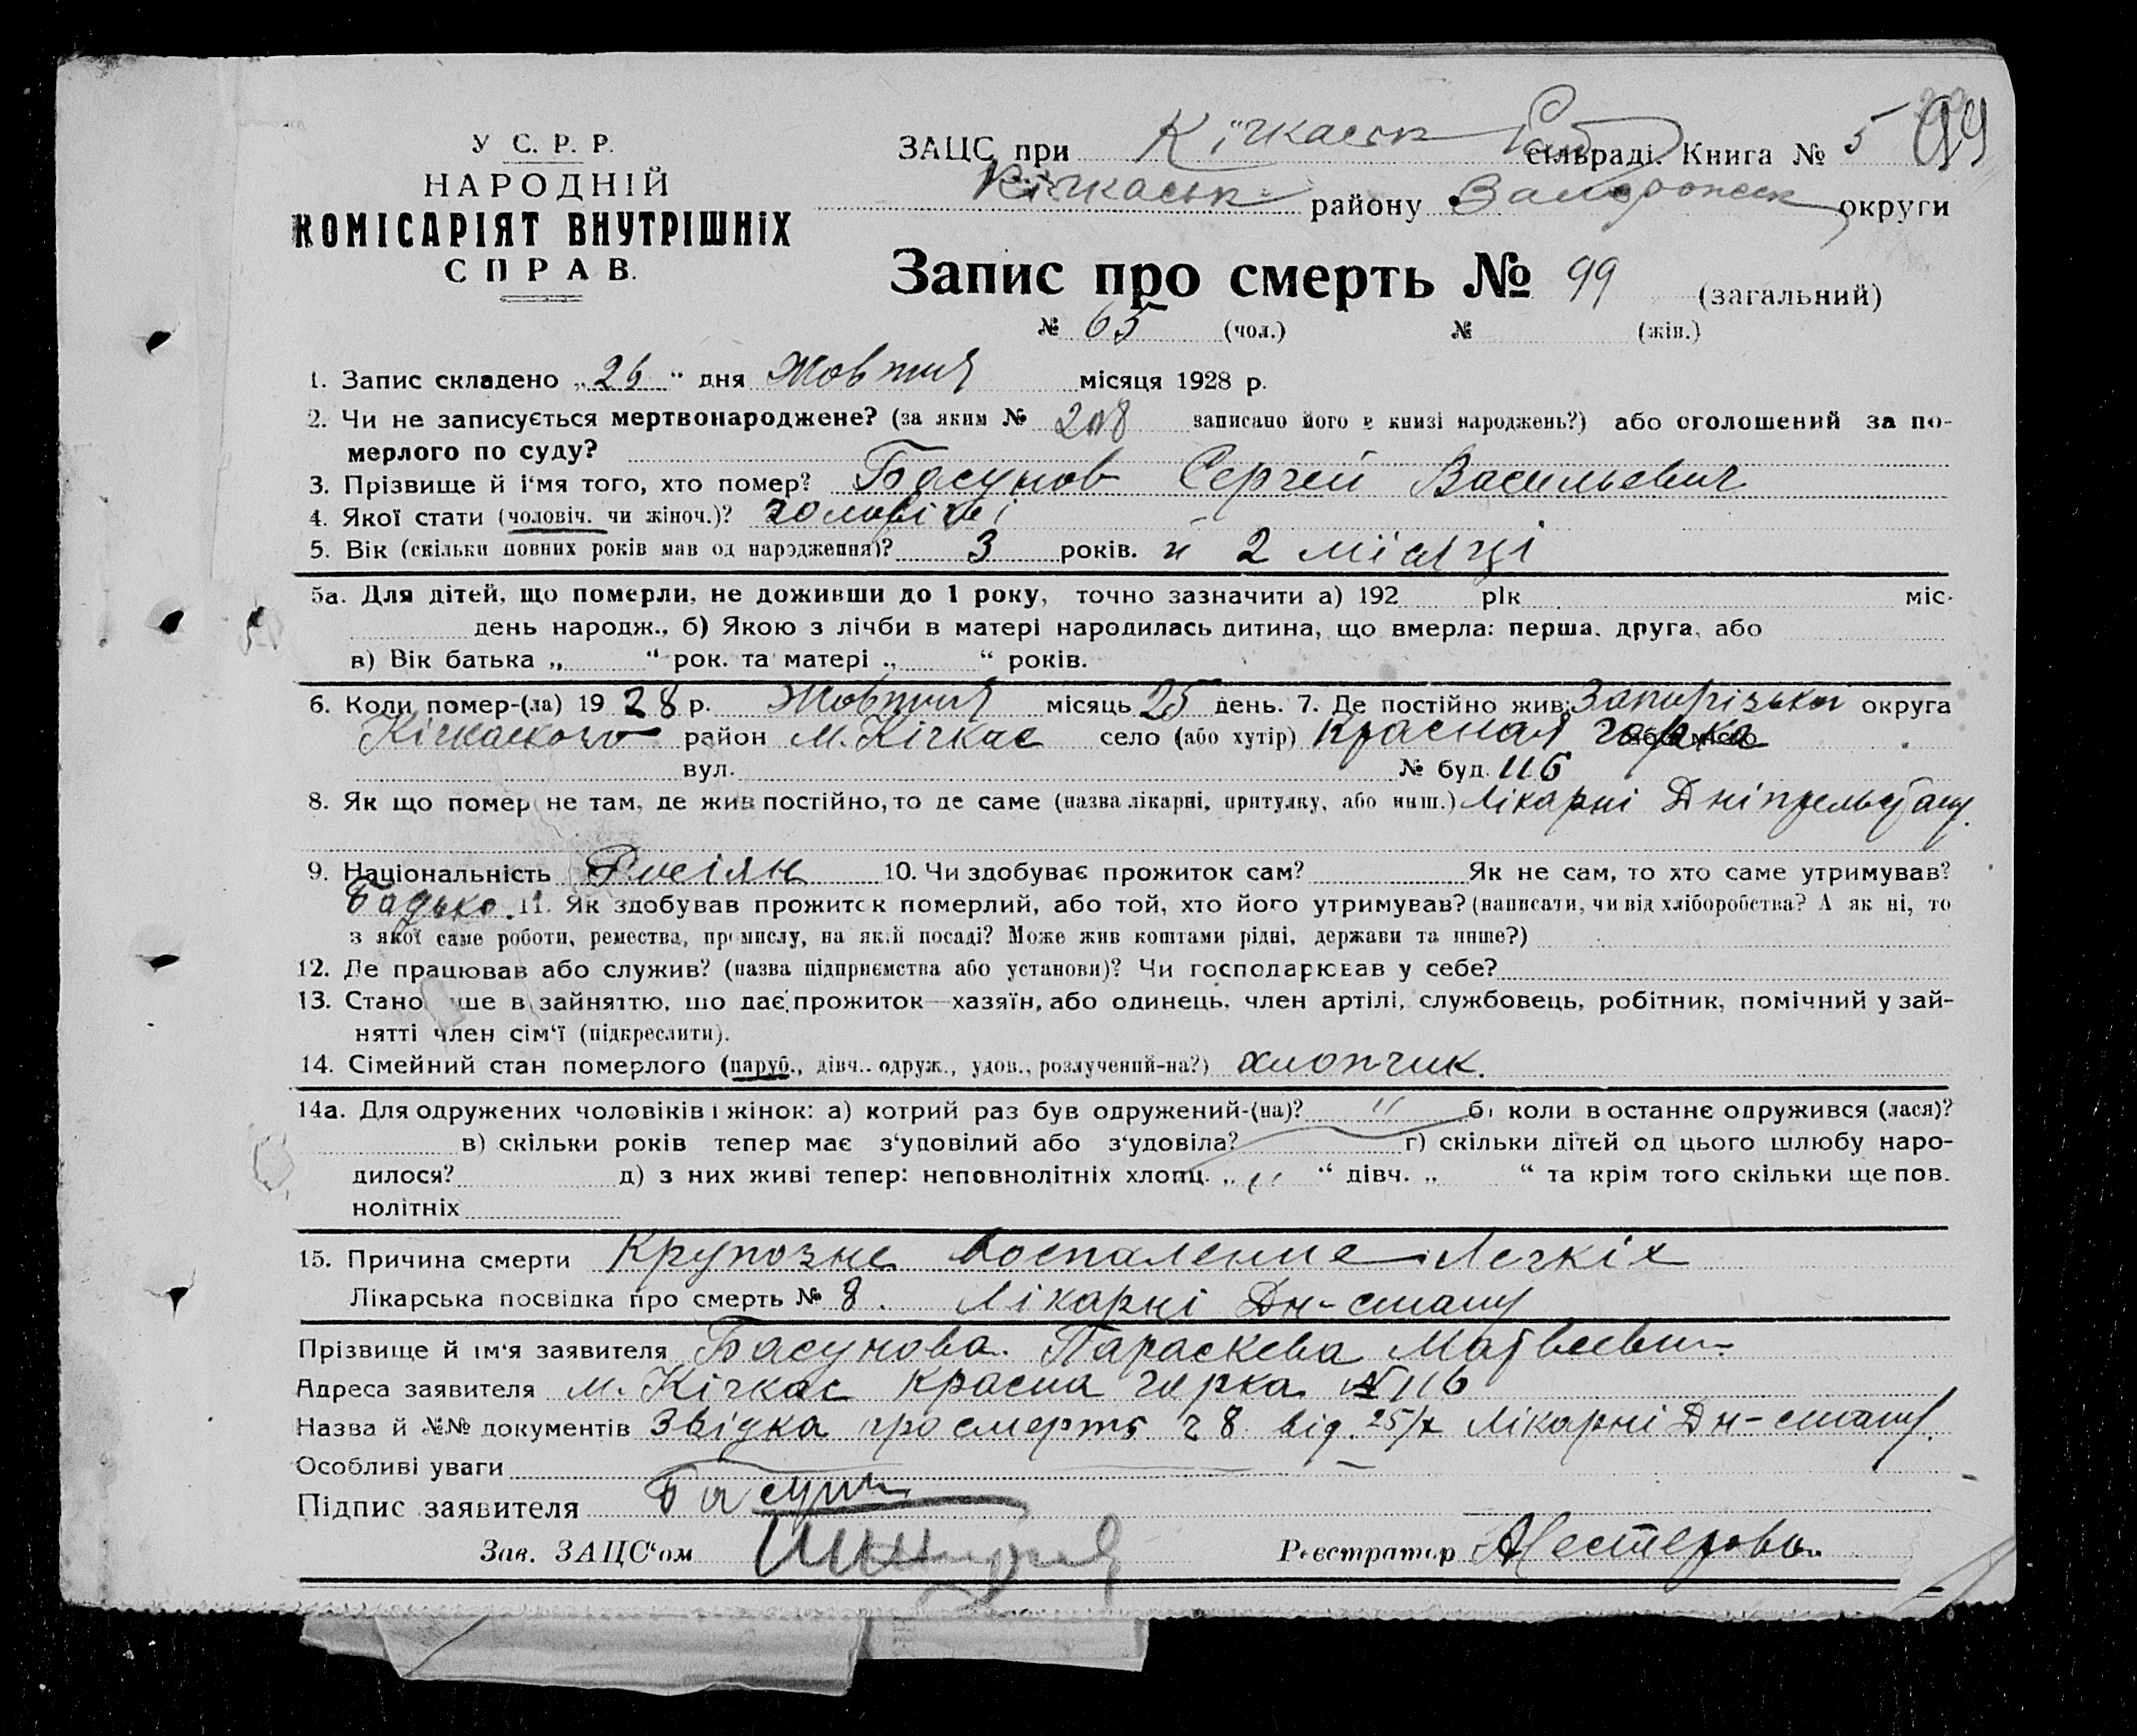 У С. Р. Р.
НАРОДНІЙ
КОМІСАРІЯТ ВНУТРІШНІХ
СПРАВ.
ЗАЦС при Кічкаськ сільраді. Книга № 5 99
Кічкаськ району округи
Запис про смерть № 99 (загальний)
№ 65 (чол.) № (жін.)
1. Запис складено „26“ дня Жовтня місяця 1928 р.
2. Чи не записується мертвонароджене? (за яким № 208 записано його в книзі народжень?) або оголошений за по-
мерлого по суду?
3. Прізвище й і'мя того, хто помер? Басунов Сергей Васильевич
4. Якої стати (чоловіч. чи жіноч.)?
5. Вік (скільки повних років мав од народження)? 3 років. и 2 місяці
5а. Для дітей, що померли, не доживши до 1 року, точно зазначити а) 192 рік міс.
день народж., б) Якою з лічби в матері народилась дитина, що вмерла: перша, друга, або
в) Вік батька „ “ рок. та матері „ “ років.
6. Коли помер-(ла) 19 28 р. Жовтня місяць 25 день. 7. Де постійно жив: Запорізької округа
Кічкаського район м. Кічкас село (або хутір) Красная горка
вул. № буд. 116
8. Як що помер не там, де жив постійно, то де саме (назва лікарні, притулку, або инш.) Лікарні
9. Національність Росіян 10. Чи здобуває прожиток сам? Як не сам, то хто саме утримував?
Батько. 11. Як здобував прожиток померлий, або той, хто його утримував? (написати, чи від хліборобства? А як ні, то
з якої саме роботи, ремества, промислу, на якій посаді? Може жив коштами рідні, держави та инше?)
12. Де працював або служив? (назва підприємства або установи)? Чи господарював у себе?
13. Становище в зайняттю, що дає прожиток—хазяїн, або одинець, член артілі, службовець, робітник, помічний у зай-
нятті член сім'ї (підкреслити).
14. Сімейний стан померлого (паруб., дівч.. одруж., удов., розлучений-на?) хлопчик.
14а. Для одружених чоловіків і жінок: а) котрий раз був одружений-(на)? " б) коли востаннє одружився (лася)?
в) скільки років тепер має з'удовілий або з'удовіла? г) скільки дітей од цього шлюбу наро-
дилося? д) з них живі тепер: неповнолітніх хлопц. „ " “ дівч. „ “ та крім того скільки ще пов.
нолітніх
15. Причина смерти Крупозне воспаление Легкіх
Лікарська посвідка про смерть № 8. Лікарні Дн-стану
Прізвище й ім'я заявителя Басунова Параскева Матвеевн
Адреса заявителя м. Кічкас красна горка № 116
Назва й №№ документів Звідка про смерть ч 8 від. 25/х Лікарні Дн-стану.
Особливі уваги
Підпис заявителя
Зав. ЗАЦС'ом Реєстратор Нестерова